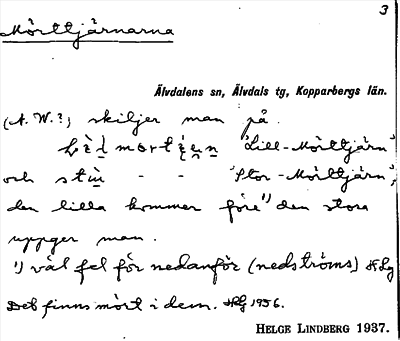 3
Mörttjärnarna
Älvdalens sn, Älvdals tg, Kopparbergs län.
(A. W.?) skiljer man på
"Lill-Mörttjärn"
och stù̱ - - "Stor-Mörttjärn";
den lilla kommer före¹) den stora
uppger man.
¹) väl fel för nedanför (nedströms) HLg
Det finns mört i dem. HLg 1956.
HELGE LINDBERG 1937.